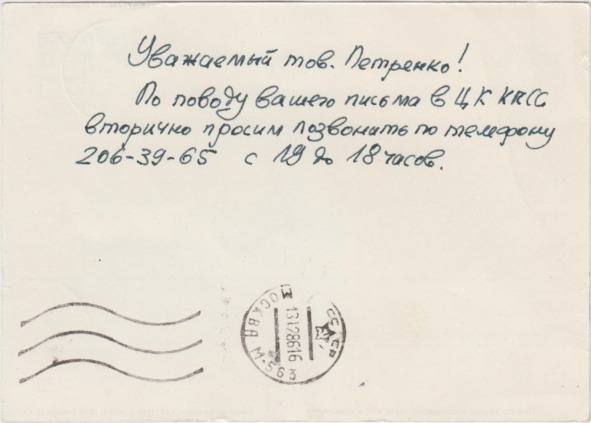 Уважаемый тов. Петренко!
По поводу вашего письма в ЦК КПСС
вторично просим позвонить по телефону
206-39-65 с 19 до 18 часов.
МОСКВА М-563
13128616
СССР